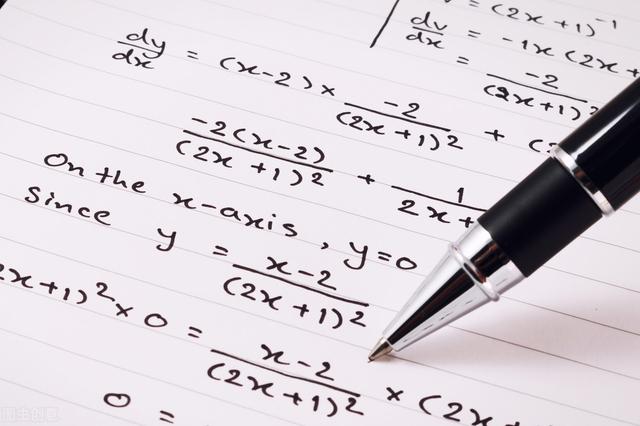 = (2x+1)^-1
dv/dx = -1x (2x +
= -2/(2x+1)²
dy/dx = (x-2) × -2/(2x+1)² + (2
-2(x-2)/(2x+1)² + 1/2x+
On the x-axis, y=0
Since y = x-2/(2x+1)²
2x+1)² × 0 = x-2/(2x+1)² × (2x
0 =